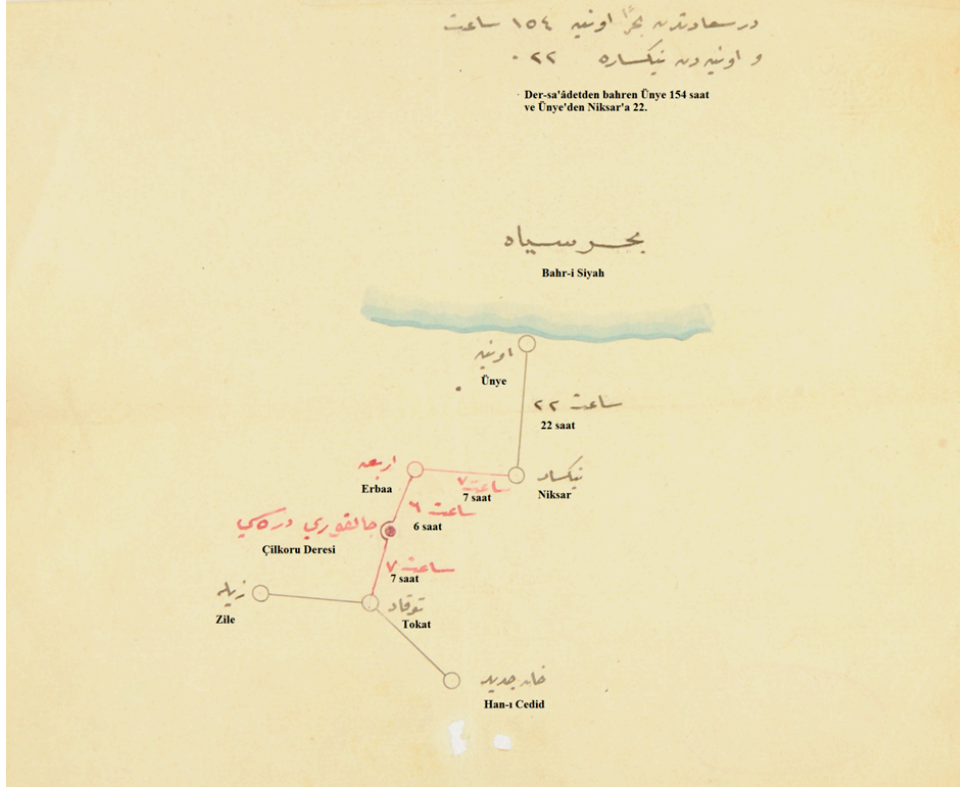 درسعادتدن بحراً اونیه ١٥٤ ساعت
و اونیه دن نیکساره ٢٢٠
Der-sa'âdetden bahren Ünye 154 saat
ve Ünye'den Niksar'a 22.
بحر سیاه
Bahr-i Siyah
اونیه
Ünye
٢٢ ساعت
22 saat
اربعه
Erbaa
٧ ساعت
7 saat
نیکسار
Niksar
٦ ساعت
6 saat
چالقوری دره سی
Çilkoru Deresi
٧ ساعت
7 saat
زیله
Zile
توقاد
Tokat
خان جدید
Han-ı Cedid